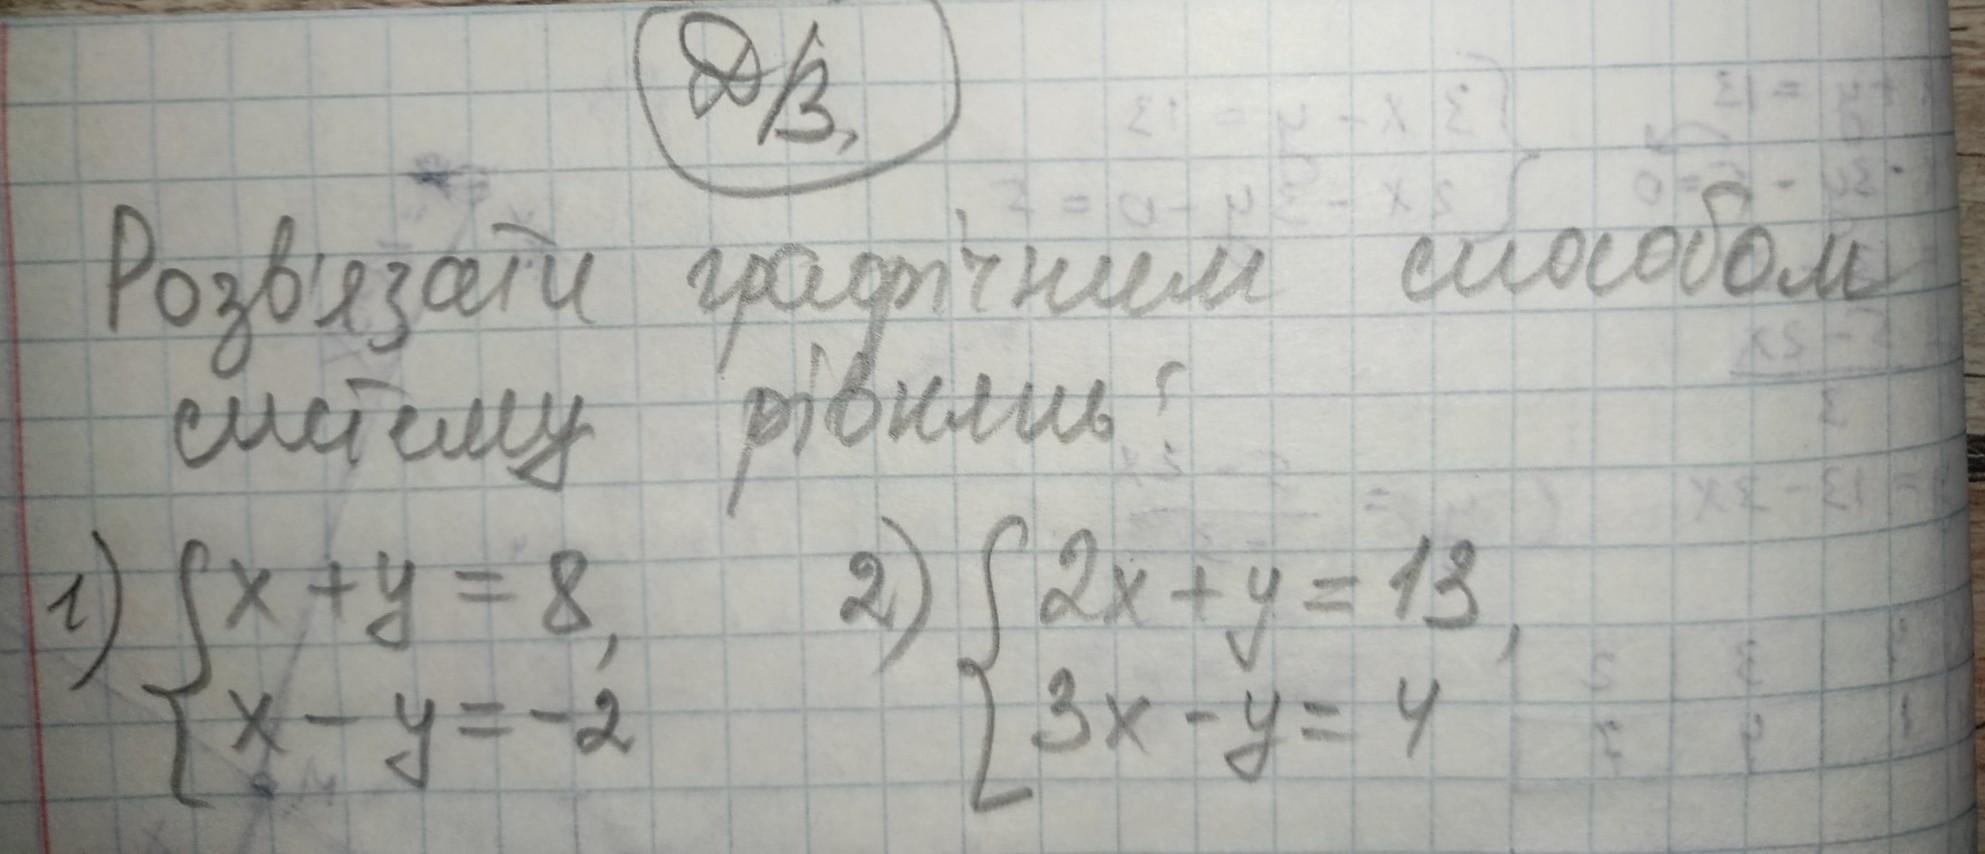 Д/З.
Розв'язати графічним способом
систему рівнянь:
1) { x + y = 8,   2) { 2x + y = 13,
x - y = -2   3x - y = 4